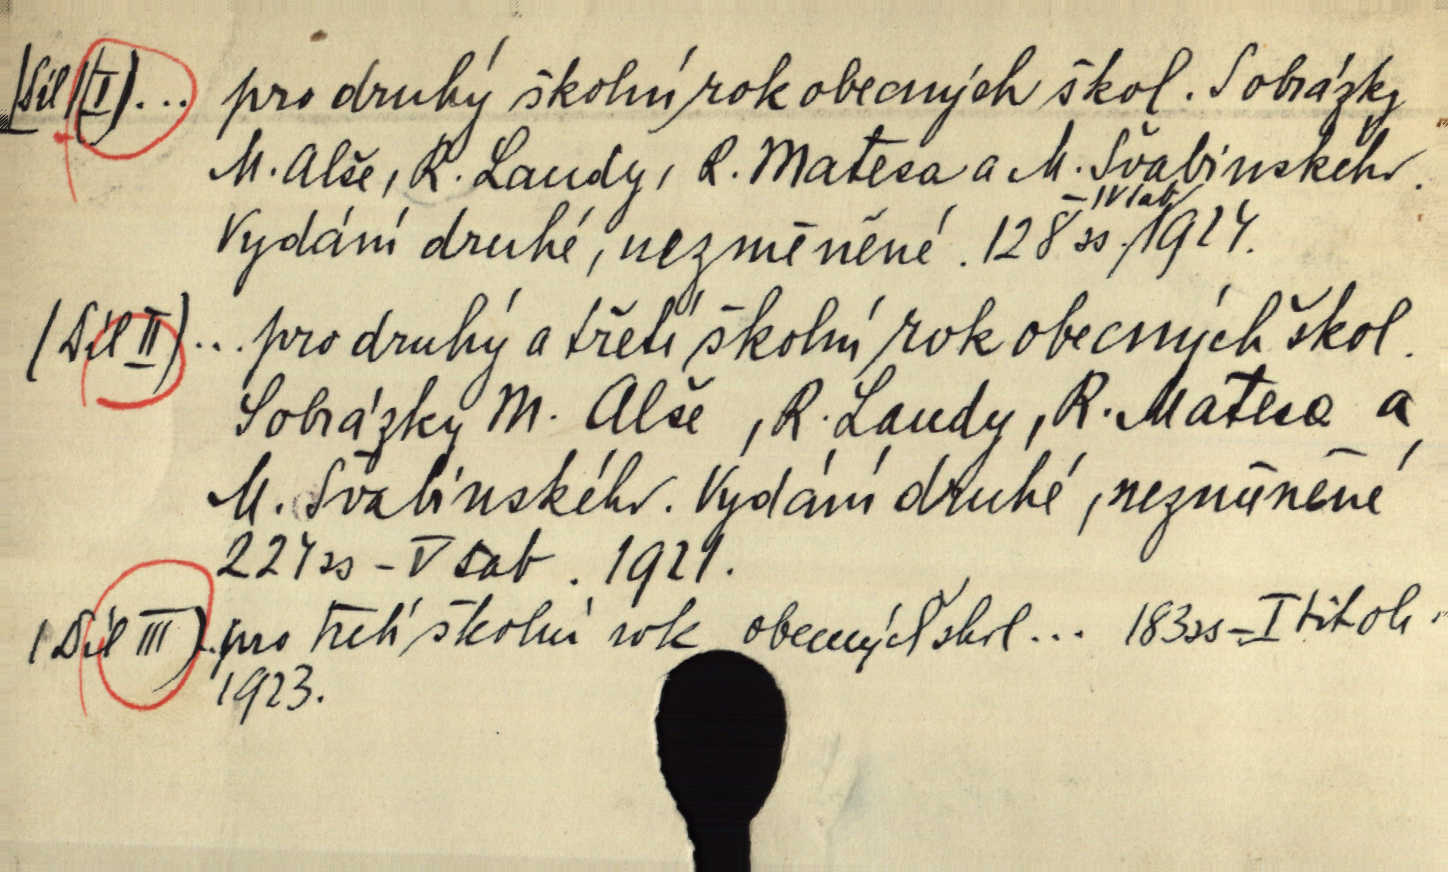 [Díl (I)... pro druhý školní rok obecných škol. S obrázky
M. Alše, R. Laudy, R. Matesa a M. Švabinského.
Vydání druhé, nezměněné. 128 ss. - IV tab 1924.
(Díl II)... pro druhý a třetí školní rok obecných škol.
S obrázky M. Alše, R. Laudy, R. Matesa a
M. Švabinského. Vydání druhé, nezměněné
224 ss - V tab. 1921.
(Díl III).. pro třetí školní rok obecných škol... 183 ss - I titob.
1923.